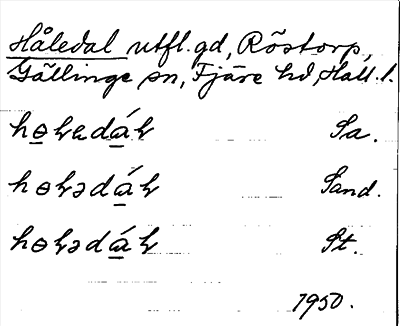 Håledal utfl. gd, Röstorp,
Gällinge sn, Fjäre hd, Hall. l.
hɵladál Sa.
hɵlədál Sand.
hɵlədál St.
1950.